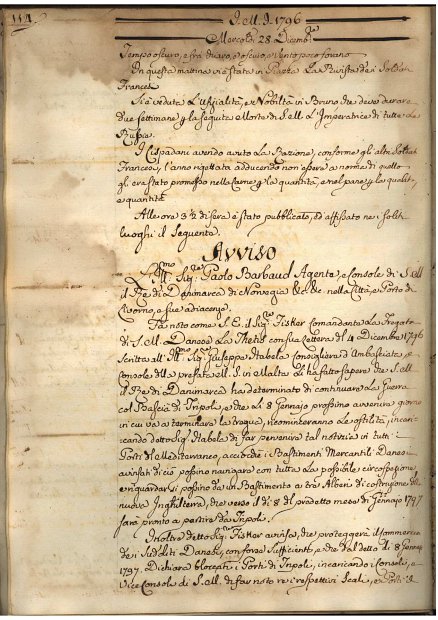 114
1796
Mercoldì 28 Dicembre
Tempo oscuro, e fra chiaro, e oscuro, e Vento poco fovano
In questa mattina vi è stata in Piazza La Rivista dei Soldati
Francesi
Si è veduta L'uffizialità, e Nobiltà in Bruno che deve durare
due settimane per la seguita Morte di S. M. L'Imperatrice di tutte Le
Russie.
I Cispadani avendo avuto La Razione, conforme gli altri Soldati
Francesi, l'anno rigettata adducendo non esser a norma di quello
gli era stato promesso nella Carne per la quantità, e nel pane per la qualità,
e quantità
Alle ore 3½ di sera è stato pubblicato, ed affissato nei soliti
luoghi il Seguente.
Avviso
Ill.mo Sig.re Paolo Barbaud Agente, e Console di S. M.
il Re di Danimarca di Norvegia &c &c nella Città, e Porto di
Livorno, e sue adiacenze.
Fà noto come S. E. il Sig.re Fisker Comandante La Fregata
di S. M. Danese La Thetis con sua Lettera del 4 Dicembre 1796
Scritta all' Ill. Sig.re Giuseppe Stabela Consigliere d'Ambasciata, e
Console della prefata M. S. in Malta gli ha fatto sapere che S. M.
il Re di Danimarca ha determinato di continuare La Guerra
col Bascià di Tripoli, e che li 8 Gennajo prossimo avvenire giorno
in cui va a terminare la tregua, ricominceranno Le ostilità, incari-
cando detto Sig.re Stabela di far pervenire tal notizia in tutti i
Porti del Mediterraneo, acciocchè i Bastimenti Mercantili Danesi
avvisati di ciò possino navigare con tutta La possibile circospezione,
e riguardarsi possino da un Bastimento a tre Alberi di costruzione della
nuova Inghilterra, che verso il dì 8 del predetto mese di Gennajo 1797
sarà pronto a partire da Tripoli.
Inoltre detto Sig.re Fisker avvisa, che proteggerà il Commercio
dei Sudditi Danesi, con forza sufficiente, e che dal detto dì 8 Gennajo
1797. Dichiara bloccati i Porti di Tripoli, incaricando i Consoli, e
Vice Consoli di S. M. di far noto nei respettivi Scali, e Porti di